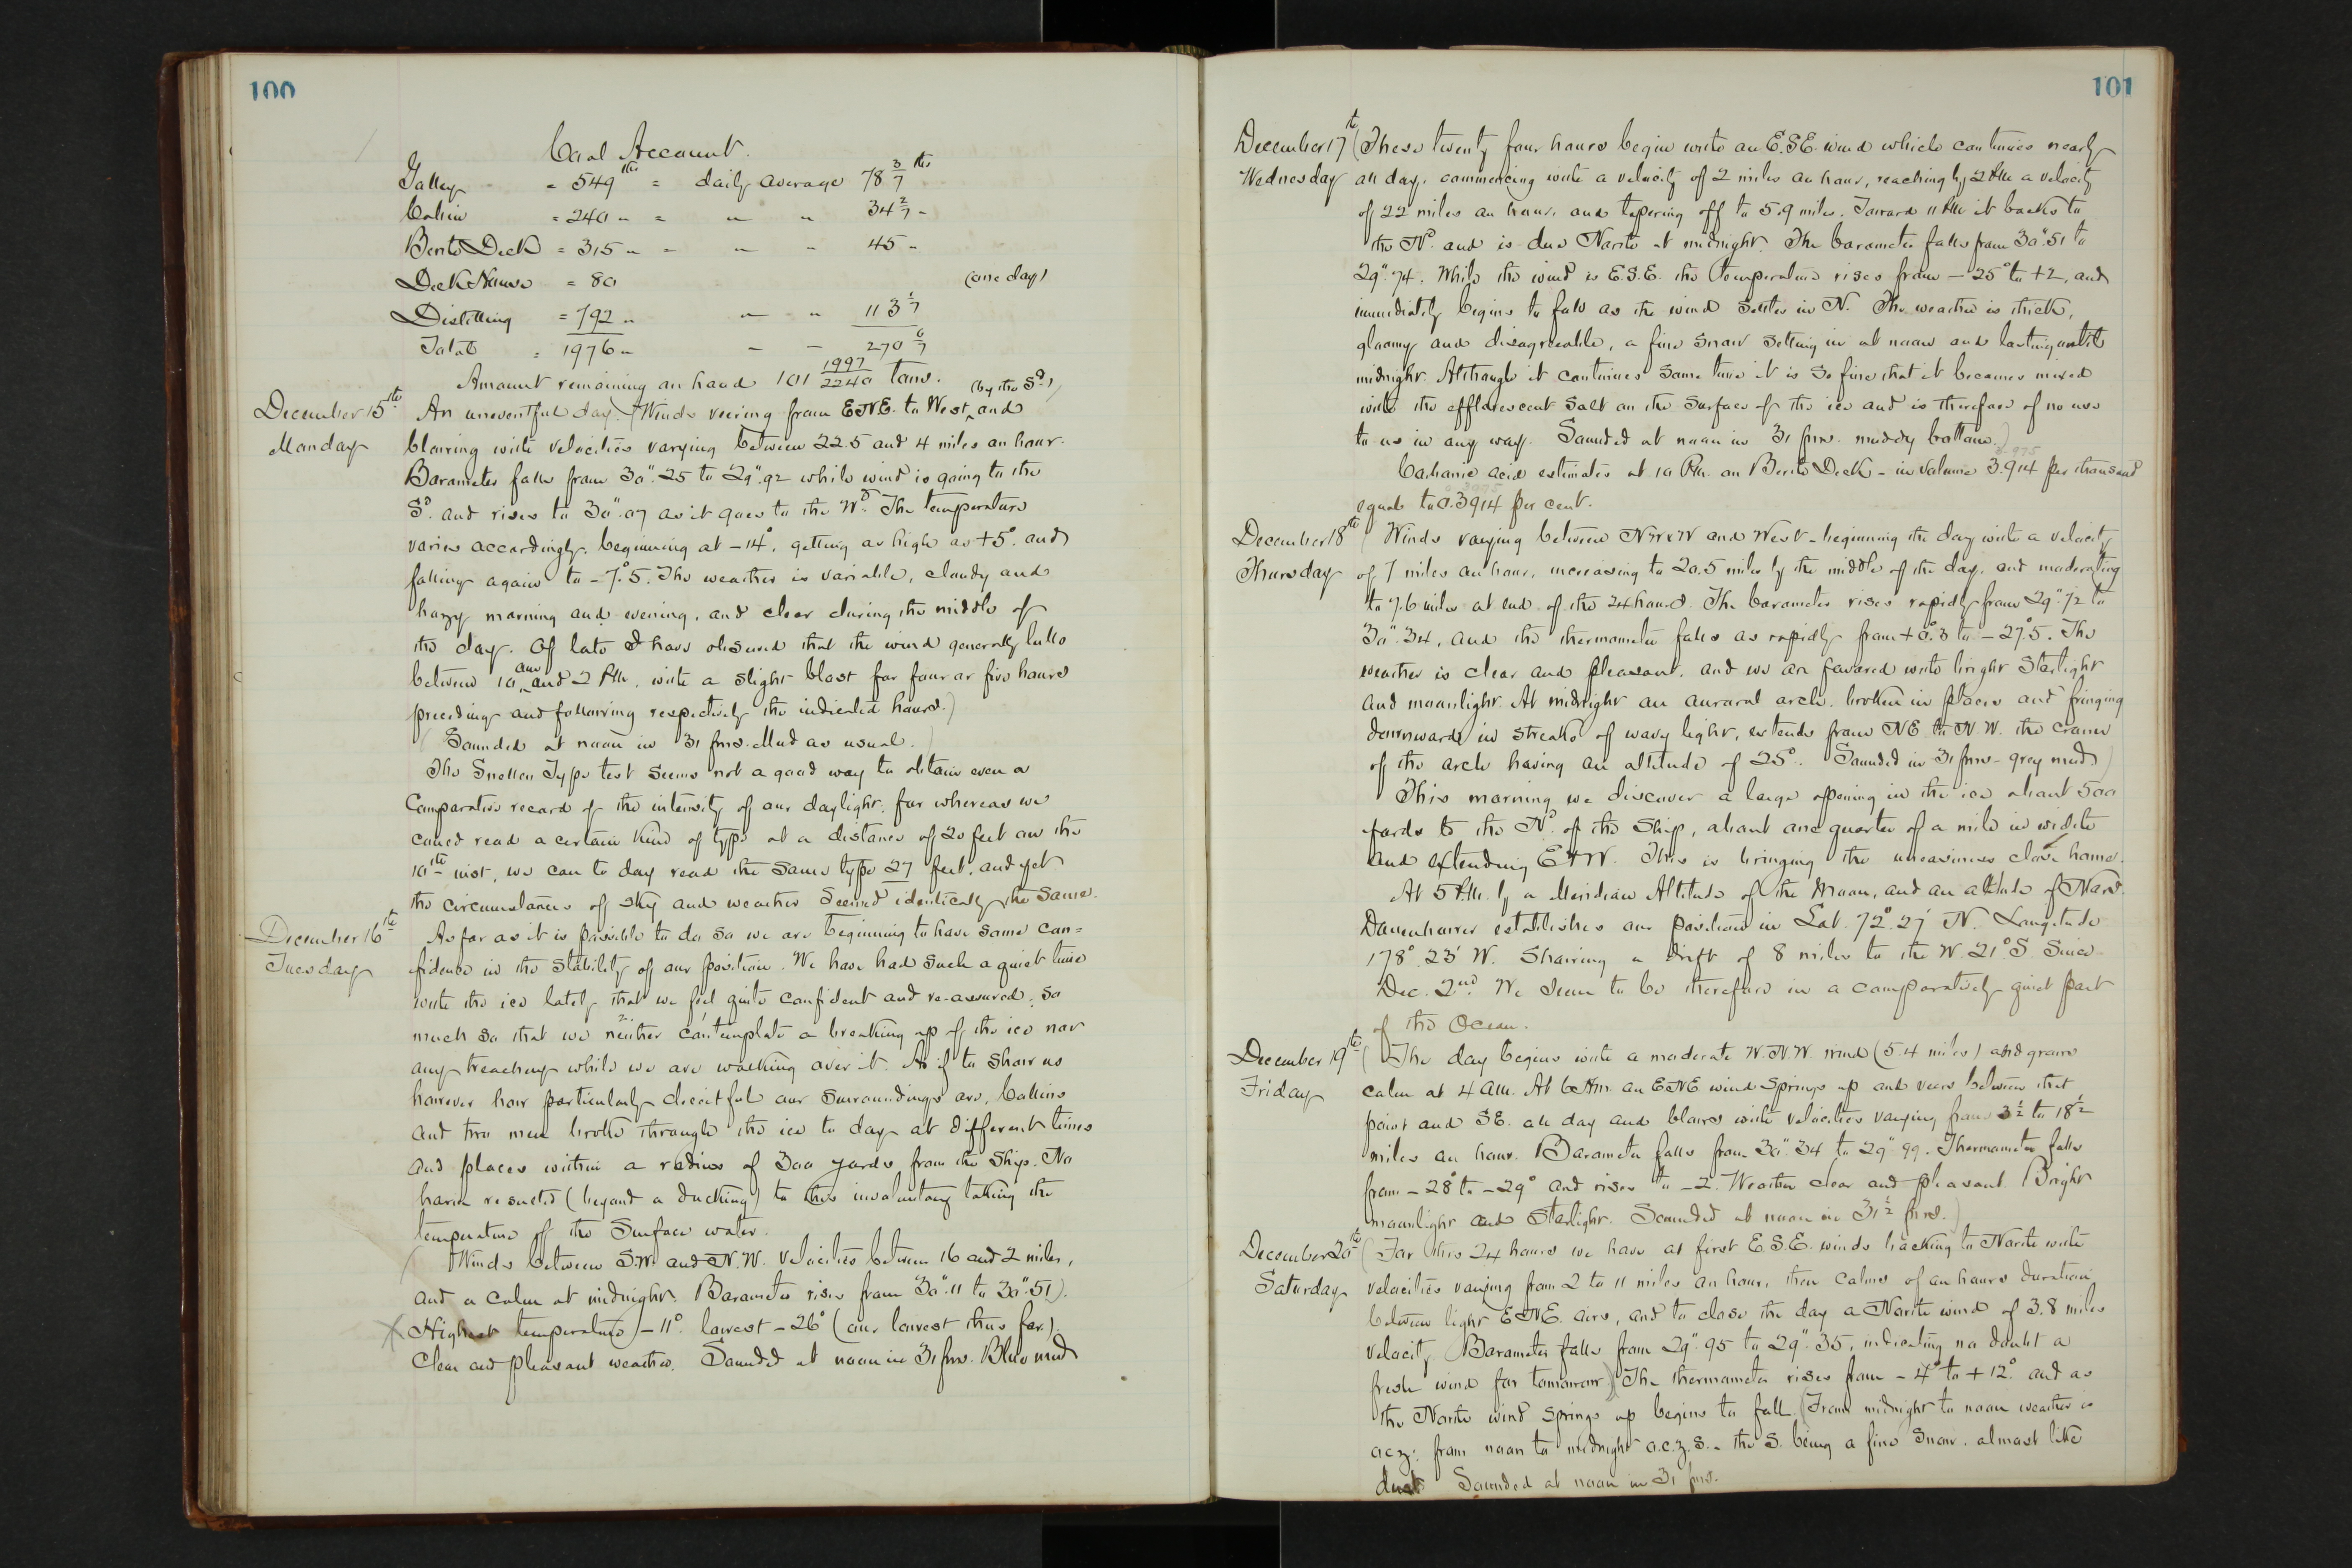 100
Coal Account.
Galley = 549 lbs = daily average 78 3/7 lbs
Cabin = 240 " = " " 34 2/7 "
Berth Deck = 315 " = " " 45 "
Deck House = 80 (one day)
Distilling = 792 " " " 113 1/7
Total = 1976 " " " 270 6/7
Amount remaining on hand 101 1997/2240 tons.
December 15th An uneventful day. (Winds veering from E.N.E. to West (by the Sd.) and
Monday blowing with velocities varying between 22.5 and 4 miles an hour.
Barometer falls from 30".25 to 29".92 while wind is going to the
Sd. and rises to 30".07 as it goes to the Wd. The temperature
varies accordingly, beginning at -14°, getting as high as +5°. and
falling again to -7.°5. The weather is variable, cloudy and
hazy morning and evening, and clear during the middle of
the day. Of late I have observed that the wind generally lulls
between 10 am and 2 P.M. with a slight blast for four or five hours
preceding and following respectively the indicated hours.)
(Sounded at noon in 31 fms. Mud as usual.)
The Snellen Type test seems not a good way to obtain even a
Comparative record of the intensity of our daylight, for whereas we
could read a certain kind of type at a distance of 20 feet on the
10th inst, we can to day read the same type 27 feet, and yet
the circumstances of sky and weather seemed identically the same.
December 16th As far as it is possible to do so we are beginning to have some con=
Tuesday fidence in the stability of our position. We have had such a quiet time
with the ice lately that we feel quite confident and re-assured; so
much so that we neither contemplate a breaking up of the ice nor
any treachery while we are walking over it. As if to show us
however how particularly deceitful our surroundings are, Collins
and two men broke through the ice to day at different times
and places within a radius of 300 yards from the Ship. No
harm resulted (beyond a ducking) to this involuntary taking the
temperature of the Surface water.
(Winds between S.W. and N.W. Velocities between 16 and 2 miles,
and a calm at midnight. Barometer rises from 30".11 to 30".51).
Highest temperature -11°. lowest -26° (our lowest thus far.)
Clear and pleasant weather. Sounded at noon in 31 fms. Blue mud
101
December 17th (These twenty four hours begin with an E.S.E. wind which continues nearly
Wednesday all day, commencing with a velocity of 2 miles an hour, reaching by 2 P.M. a velocity
of 22 miles an hour, and tapering off to 5.9 miles. Toward 11 P.M. it backs to
the Nd. and is due North at midnight. The barometer falls from 30".51 to
29".74. While the wind is E.S.E. the temperature rises from -25° to +2, and
immediately begins to fall as the wind settles in N. The weather is thick,
gloomy and disagreeable, a fine snow setting in at noon and lasting until
midnight. Although it continues some time it is so fine that it becomes mixed
with the efflorescent salt on the surface of the ice and is therefore of no use
to us in any way. Sounded at noon in 31 fms. muddy bottom.)
Carbonic acid estimates at 10 P.M. on Berth Deck - in volume 3.914 per thousand
equals to 0.3914 per cent.
December 18th (Winds varying between NWxW and West - beginning the day with a velocity
Thursday of 7 miles an hour, increasing to 20.5 miles by the middle of the day, and moderating
to 7.6 miles at end of the 24 hours. The barometer rises rapidly from 29".72 to
30".34, and the thermometer falls as rapidly from +0°.3 to -27°.5. The
weather is clear and pleasant, and we are favored with bright starlight
and moonlight. At midnight an auroral arch, broken in places and fringing
downwards in streaks of wavy light, extends from NE to N.W. the crown
of the arch having an altitude of 25°. Sounded in 31 fms - grey mud)
This morning we discover a large opening in the ice about 500
yards to the Nd. of the Ship, about one quarter of a mile in width
and extending E & W. This is bringing the uneasiness close home.
At 5 P.M. by a Meridian Altitude of the Moon, and an altitude of Mars
Danenhower establishes our position in Lat. 72° 27' N. Longitude
178°. 23' W. Showing a drift of 8 miles to the W. 21° S. Since
Dec. 2nd We seem to be therefore in a comparatively quiet part
of the Ocean.
December 19th (The day begins with a moderate W.N.W. wind (5.4 miles) and grows
Friday calm at 4 a.m. At 6 A.M. an ENE wind springs up and veers between that
point and SE. all day and blows with velocities varying from 3 1/2 to 18 1/2
miles an hour. Barometer falls from 30".34 to 29".99. Thermometer falls
from -28° to -29° and rises to -2. Weather clear and pleasant. Bright
moonlight and starlight. Sounded at noon in 31 1/2 fms.)
December 20th (For this 24 hours we have at first E.S.E. winds backing to North with
Saturday velocities varying from 2 to 11 miles an hour, then calms of an hours duration
between light ENE. airs, and to close the day a North wind of 3.8 miles
velocity. Barometer falls from 29".95 to 29".35, indicating no doubt a
fresh wind for tomorrow.) The thermometer rises from -4° to +12°. and as
the North wind springs up begins to fall. (From midnight to noon weather is
o.c.z; from noon to midnight o.c.z.s. - the S. being a fine snow, almost like
dust. Sounded at noon in 31 fms.